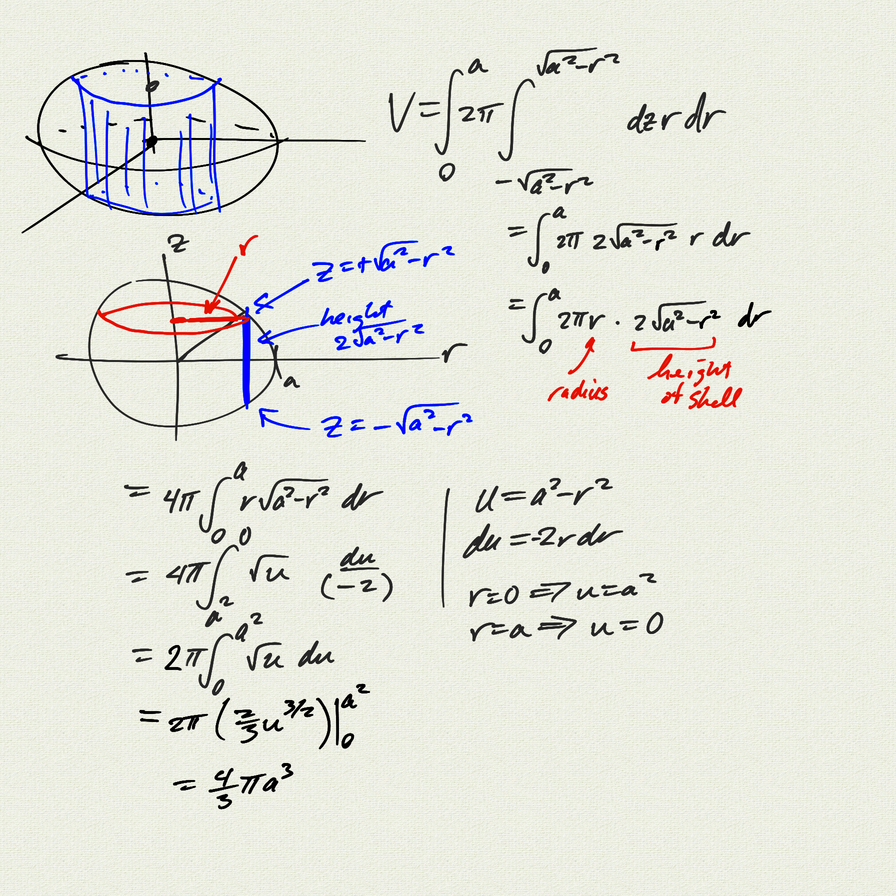 V = ∫₀ᵃ 2π ∫_{-√(a²-r²)}^{√(a²-r²)} dz r dr
= ∫₀ᵃ 2π 2√(a²-r²) r dr
= ∫₀ᵃ 2πr · 2√(a²-r²) dr
radius
height
of shell
z
r
z = +√(a²-r²)
height
2√(a²-r²)
r
a
z = -√(a²-r²)
= 4π ∫₀ᵃ r√(a²-r²) dr
= 4π ∫_{a²}^{0} √u du/(-2)
= 2π ∫₀^{a²} √u du
= 2π (2/3 u^{3/2}) |₀^{a²}
= 4/3 πa³
u = a²-r²
du = -2r dr
r=0 ⇒ u=a²
r=a ⇒ u=0